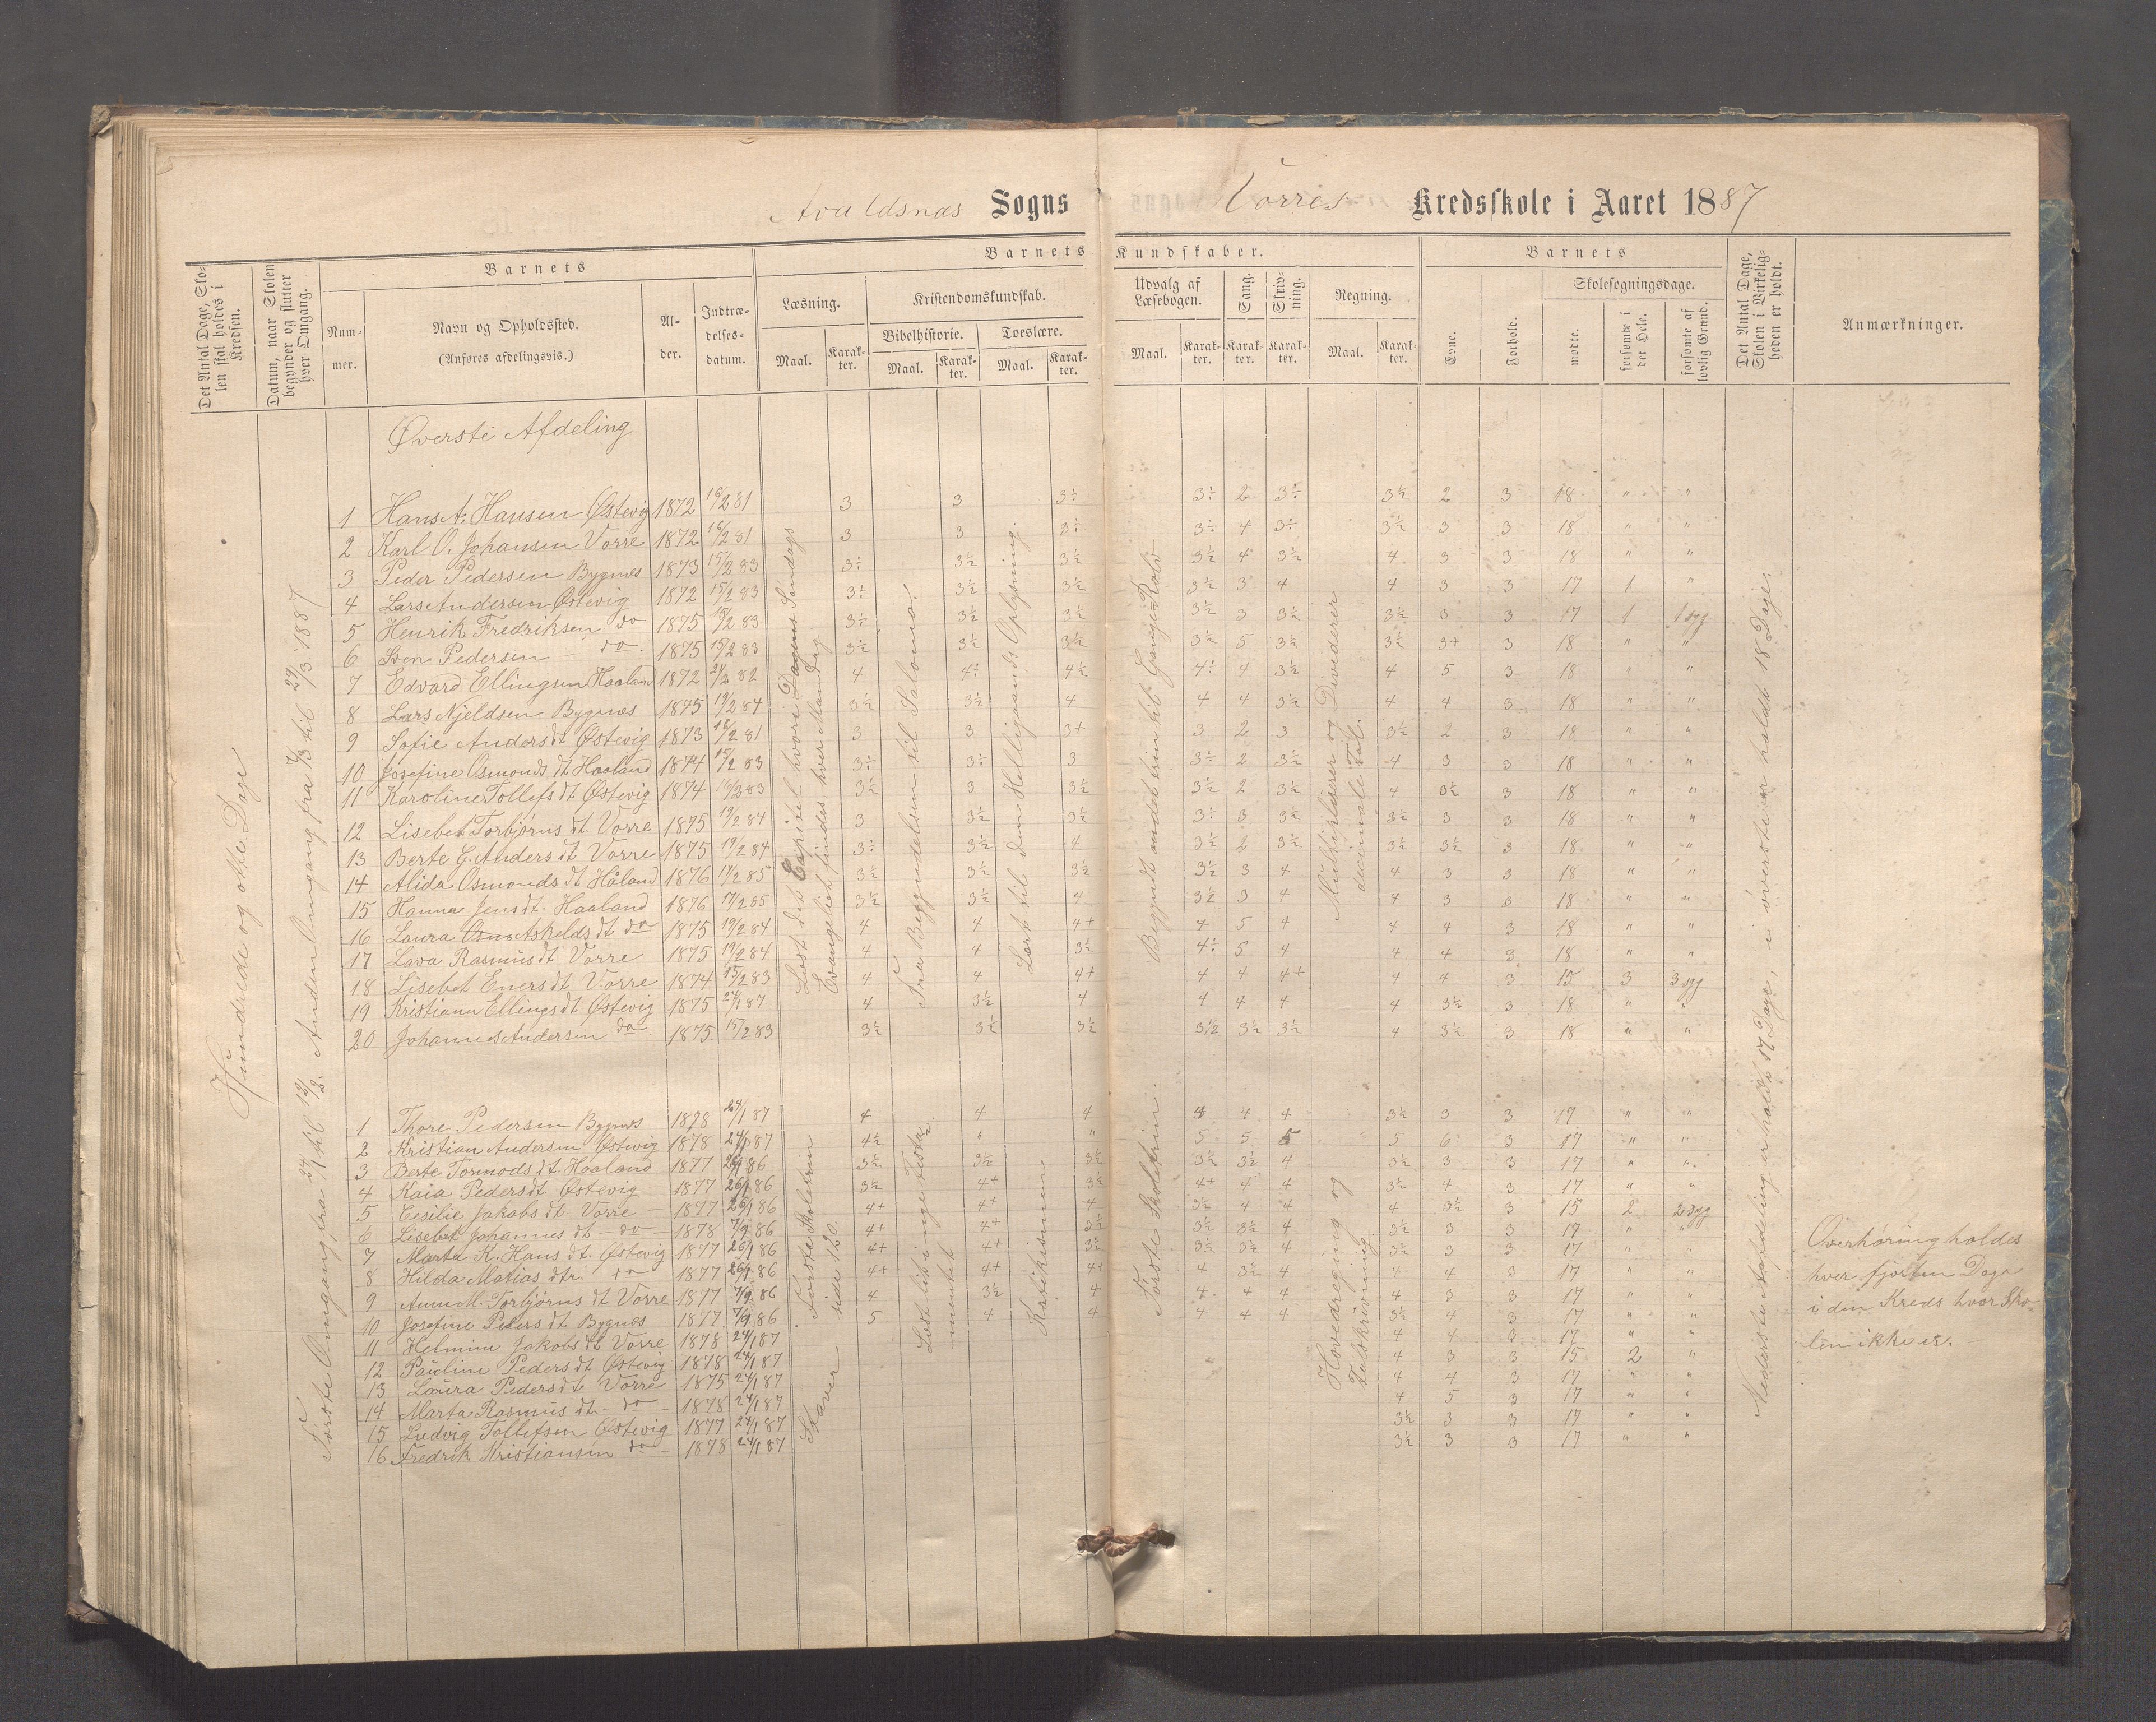 Avaldsnæs Sogns Vorres Kredsskole i Aaret 1887
Det Antal Dage, Skolen skal holdes i Kredsen.
Datum, naar Skolen begynder og slutter hver Omgang.
Barnets
Nummer.
Navn og Opholdssted.
(Anføres afdelingsvis.)
Alder.
Indtrædelsesdatum.
Barnets Kundskaber.
Læsning.
Maal. Karakter.
Kristendomskundskab.
Bibelhistorie.
Maal. Karakter.
Troeslære.
Maal. Karakter.
Udvalg af Læsebogen.
Maal. Karakter.
Sang.
Karakter.
Skrivning.
Karakter.
Regning.
Maal. Karakter.
Barnets
Evne.
Forhold.
Skolesøgningsdage.
mødte.
forsømte i det Hele.
forsømte af lovlig Grund.
Det Antal Dage, Skolen i Virkeligheden er holdt.
Anmærkninger.
Øverste Afdeling
1 Hans A. Hansen Østevig 1872 16/2 81 3 3 3÷ 3÷ 2 3÷ 3½ 2 3 18 " "
2 Karl O. Johansen Vorre 1872 16/2 81 3 3 3÷ 3÷ 4 3÷ 3½ 3 3 18 " "
3 Peder Pedersen Bygnes 1873 15/2 83 3÷ 3½ 3½ 3½ 4 3½ 4 3 3 18 " "
4 Lars Andersen Østevig 1872 15/2 83 3÷ 3½ 3½ 3½ 3 4 4 3 3 17 1 "
5 Henrik Fredriksen do 1875 15/2 83 3÷ 3½ 3½ 3½ 3 3½ 3½ 3 3 17 1 1 syg
6 Sven Pedersen do 1875 15/2 83 3½ 3½ 3½ 3½ 5 3½ 3½ 3+ 3 18 " "
7 Edvard Ellingsen Haaland 1872 21/2 82 4 4÷ 4½ 4÷ 4 3½ 4 5 3 18 " "
8 Lars Njeldsen Bygnes 1875 19/2 84 3½ 3½ 4 4 4 3½ 4 4 3 18 " "
9 Sofie Anders dt Østevig 1873 16/2 81 3 3 3+ 3 2 3 3½ 2 3 18 " "
10 Josefine Osmonds dt Haaland 1874 15/2 83 3÷ 3÷ 3 3÷ 2 3½ 4 3 3 18 " "
11 Karoline Tollefs dt Østevig 1874 15/2 83 3½ 3 3½ 3½ 2 3½ 4 3½ 3 18 " "
12 Lisebet Torbjørns dt. Vorre 1875 19/2 84 3 3½ 3½ 3÷ 3 3½ 3½ 3 3 18 " "
13 Berte G. Anders dt Vorre 1875 19/2 84 3÷ 3½ 4 3½ 2 3½ 3½ 3½ 3 18 " "
14 Alida Osmonds dt Håland 1876 17/2 85 3½ 3½ 3½ 3½ 3 4 4 3 3 18 " "
15 Hanna Jens dt. Haaland 1876 17/2 85 3½ 3½ 4 3½ 3 4 4 3 3 18 " "
16 Laura Askelds dt do 1875 19/2 84 4 4 4+ 4 5 4 4 4 3 18 " "
17 Lava Rasmus dt Vorre 1875 19/2 84 4 4 3½ 4÷ 5 4 4 4 3 18 " "
18 Lisebet Eners dt Vorre 1874 15/2 83 4 4 4+ 4 4 4+ 4 4 3 15 3 3 syg
19 Kristiana Ellings dt Østevig 1875 24/1 87 4 3½ 4 4 4 4 4 3½ 3 18 " "
20 Johannes Andersen do 1875 15/2 83 3½ 3½ 3½ 3½ 3½ 3½ 4 3½ 3 18 " "
1 Thore Pedersen Bygnes 1878 24/1 87 4 4 4 4 4 4 3½ 3 3 17 " "
2 Kristian Andersen Østevig 1878 24/1 87 4½ " " 5 5 5 5 6 3 17 " "
3 Berte Tormods dt. Haaland 1877 26/1 86 3½ 3½ 3½ 3½ 3½ 4 3½ 3 3 17 " "
4 Kaia Peders dt. Østevig 1877 26/1 86 3½ 4+ 3½ 4+ 4 4 3½ 4 3 17 " "
5 Cesilie Jakobs dt. Vorre 1877 26/1 86 4+ 4+ 4 3½ 4 4 4 3½ 3 15 2 2 syg
6 Lisebet Johannes dt do 1878 7/9 86 4+ 4+ 3½ 3½ 3½ 4 3½ 3 3 17 " "
7 Marta K. Hans dt. Østevig 1877 26/1 86 4+ 4+ 3½ 3½ 3½ 4 3½ 3 3 17 " "
8 Hilda Matias dtr. do 1877 26/1 86 4+ 4+ 4+ 4 3½ 4 4 4 3 17 " "
9 Anna M. Torbjørns dt Vorre 1877 7/9 86 4 3½ 4 4 4 4 4 3 3 17 " "
10 Josefine Peders dt Bygnes 1877 7/9 86 5 4 4 4 4 4 3½ 4 3 17 " "
11 Helmine Jakobs dt Vorre 1878 24/1 87 4 4 3 17 " "
12 Pauline Peders dt Østevig 1878 24/1 87 4 3 3 15 2 "
13 Laura Peders dt Vorre 1875 24/1 87 4 4 3 17 " "
14 Marta Rasmus dt. do 1878 24/1 87 4 5 3 17 " "
15 Ludvig Tollefsen Østevig 1877 24/1 87 3½ 3 3 17 " "
16 Fredrik Kristiansen do 1878 24/1 87 3½ 3 3 17 " "
Hundrede og otte Dage
Første Omgang fra 24/1 til 12/2. Anden Omgang fra 7/3 til 29/3 1887
Læst det Capitel hvori Dagens Søndags
Evangeliet findes hver Mandag
Fra Begyndelsen til Salomo.
Lært til den Helligaands Oplysning.
Begyndt andet trin til Gange-Rolv
Multiplikasser og Dividerer
decimale Tal.
Første Skoletrin
side 120.
Staver
Læst lidt i nye Testa-
mentet
Katikismen
Første Skoletrin.
Hovedregning og
Talskrivning.
Nederste Afdeling er holdt 17 Dage, i øverste er holdt 18 Dage.
Overhøring holdes
hver fjorten Dage
i den Kreds hvor Sko-
len ikke er.